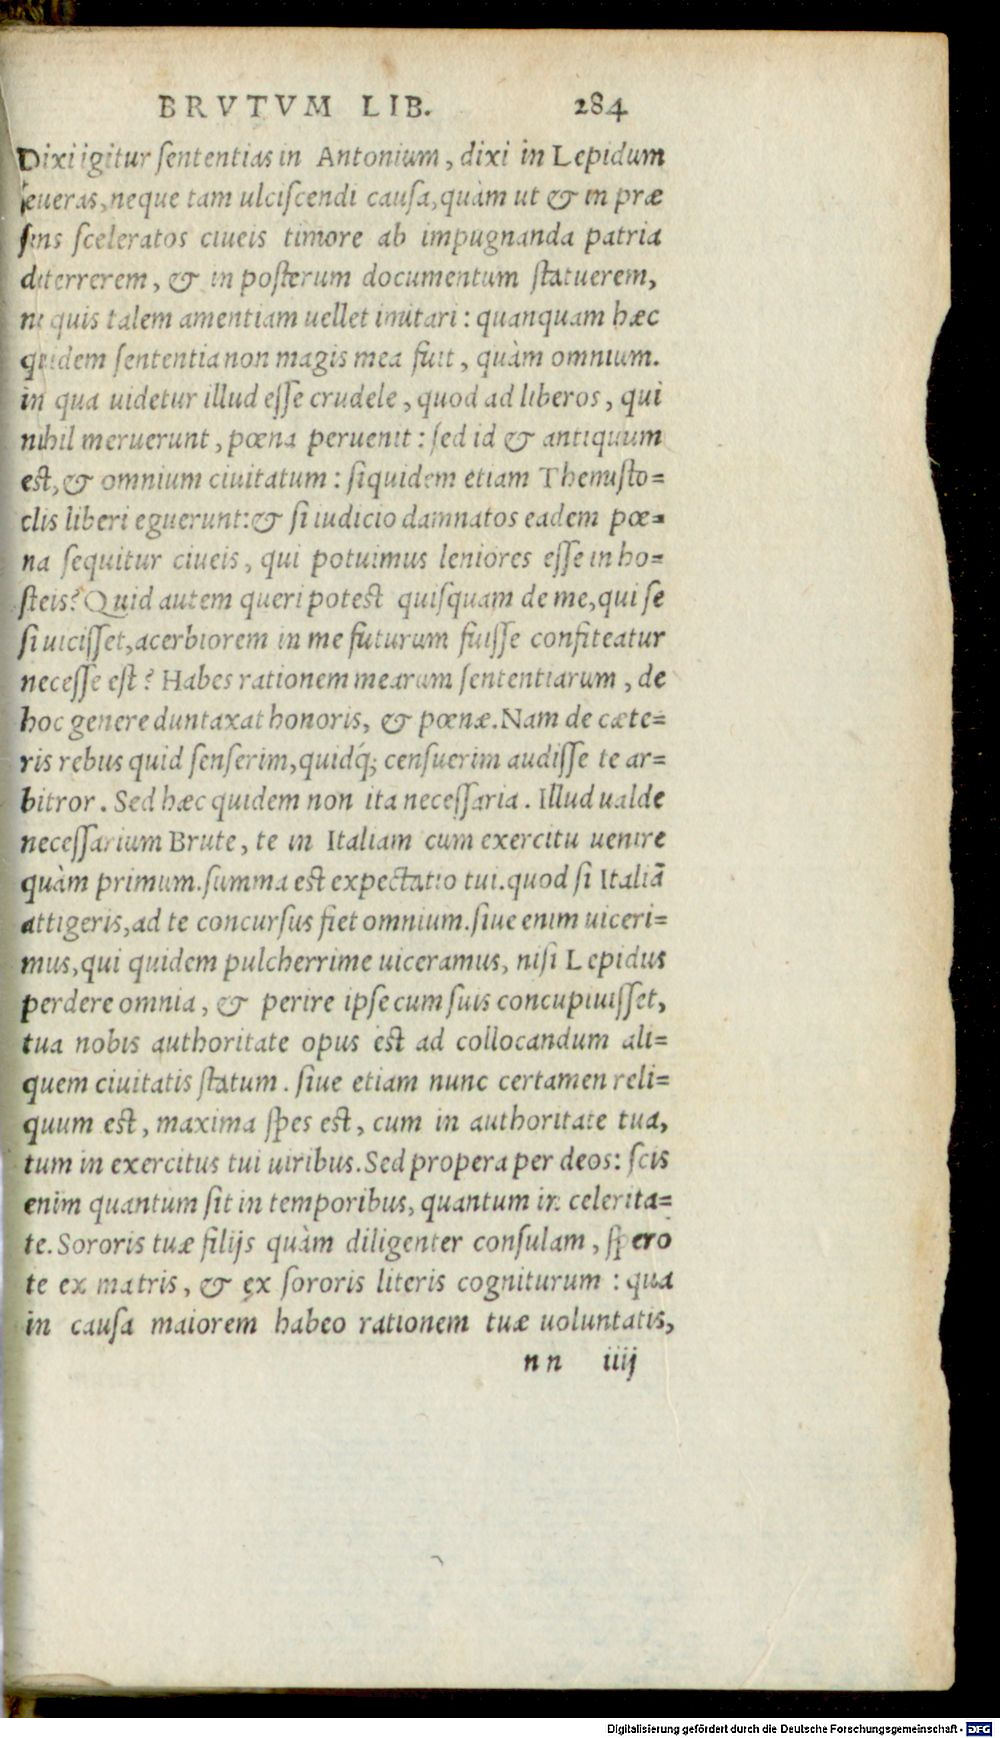 BRVTVM LIB. 284
Dixi igitur sententias in Antonium, dixi in Lepidum
seueras, neque tam ulciscendi causa, quàm ut & in præ
sens sceleratos ciueis timore ab impugnanda patria
deterrerem, & in posterum documentum statuerem,
ne quis talem amentiam uellet imitari: quanquam hæc
quidem sententia non magis mea fuit, quàm omnium.
in qua uidetur illud esse crudele, quod ad liberos, qui
nihil meruerunt, pœna peruenit: sed id & antiquum
est, & omnium ciuitatum: siquidem etiam Themisto=
clis liberi eguerunt: & si iudicio damnatos eadem pœ=
na sequitur ciueis, qui potuimus leniores esse in ho=
steis? Quid autem queri potest quisquam de me, qui se
si uicisset, acerbiorem in me futurum fuisse confiteatur
necesse est? Habes rationem mearum sententiarum, de
hoc genere duntaxat honoris, & pœnæ. Nam de cæte=
ris rebus quid senserim, quidq́; censuerim audisse te ar=
bitror. Sed hæc quidem non ita necessaria. Illud ualde
necessarium Brute, te in Italiam cum exercitu uenire
quàm primum. summa est expectatio tui. quod si Italiā
attigeris, ad te concursus fiet omnium. siue enim uiceri=
mus, qui quidem pulcherrime uiceramus, nisi Lepidus
perdere omnia, & perire ipse cum suis concupiuisset,
tua nobis authoritate opus est ad collocandum ali=
quem ciuitatis statum. siue etiam nunc certamen reli=
quum est, maxima spes est, cum in authoritate tua,
tum in exercitus tui uiribus. Sed propera per deos: scis
enim quantum sit in temporibus, quantum in celerita=
te. Sororis tuæ filijs quàm diligenter consulam, spero
te ex matris, & ex sororis literis cogniturum: qua
in causa maiorem habeo rationem tuæ uoluntatis,
nn iiij
Digitalisierung gefördert durch die Deutsche Forschungsgemeinschaft - DFG